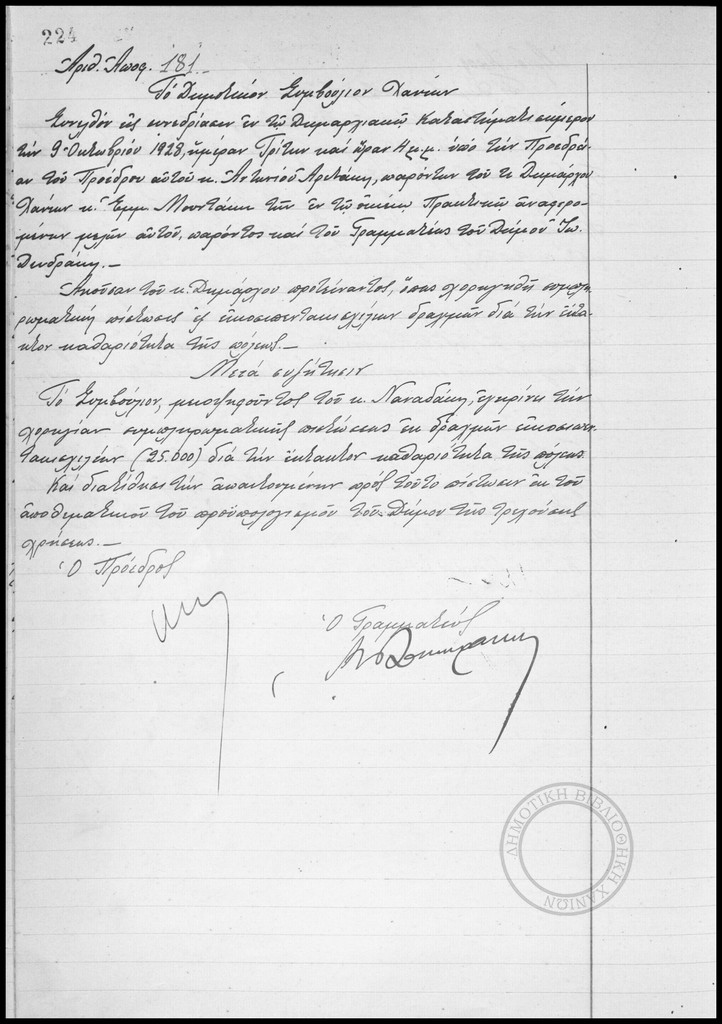 224
Ἀριθ. Ἀποφ. 181
Τό Δημοτικόν Συμβούλιον Χανίων
Συνελθόν εἰς συνεδρίασιν ἐν τῷ Δημαρχιακῷ Καταστήματι σήμερον
τήν 9 Ὀκτωβρίου 1928, ἡμέραν Τρίτην καί ὥραν 4 μ.μ. ὑπό τήν Προεδρεί-
αν τοῦ Προέδρου αὐτοῦ κ. Ἀντωνίου παρόντων τοῦ κ. Δημάρχου
Χανίων κ. Ἐμμ. Μουντάκη τῶν ἐν τῷ οἰκείῳ Πρακτικῷ ἀναφερο-
μένων μελῶν αὐτοῦ, παρόντος καί τοῦ Γραμματέως τοῦ Δήμου Ἰω.
Δενδράκη.—
Ἀκοῦσαν τοῦ κ. Δημάρχου προτείναντος, ὅπως χορηγηθῇ συμπλη-
ρωματική πίστωσις ἐξ εἰκοσιπεντακισχιλίων δραχμῶν διά τήν ἔκτα-
κτον καθαριότητα τῆς πόλεως.—
Μετά συζήτησιν
Τό Συμβούλιον, μειοψηφοῦντος τοῦ κ. Ναναδάκη, ἐγκρίνει τήν
χορηγίαν συμπληρωματικῆς πιστώσεως ἐκ δραχμῶν εἰκοσιπεν-
τακισχιλίων (25.000) διά τήν ἔκτακτον καθαριότητα τῆς πόλεως.
Καί διατίθησι τήν ἀπαιτουμένην πρός τοῦτο πίστωσιν ἐκ τοῦ
ἀποθεματικοῦ τοῦ προϋπολογισμοῦ τοῦ Δήμου τῆς τρεχούσης
χρήσεως.—
Ὁ Πρόεδρος
Ὁ Γραμματεύς
ΔΗΜΟΤΙΚΗ ΒΙΒΛΙΟΘΗΚΗ ΧΑΝΙΩΝ